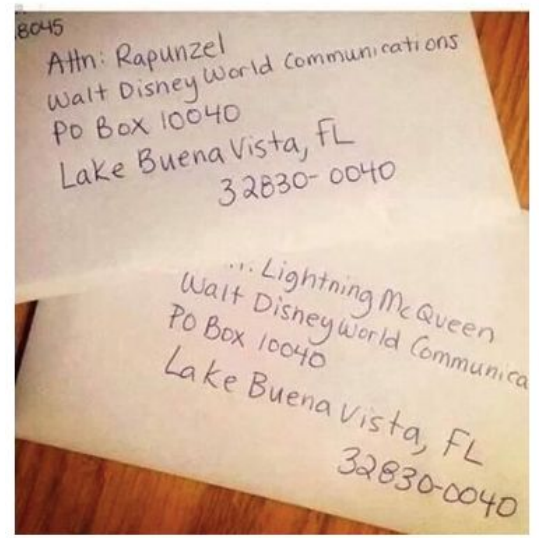 8045
Attn: Rapunzel
Walt Disney World Communications
PO Box 10040
Lake Buena Vista, FL
32830-0040
Lightning McQueen
Walt Disney World Communica
PO Box 10040
Lake Buena Vista, FL
32830-0040